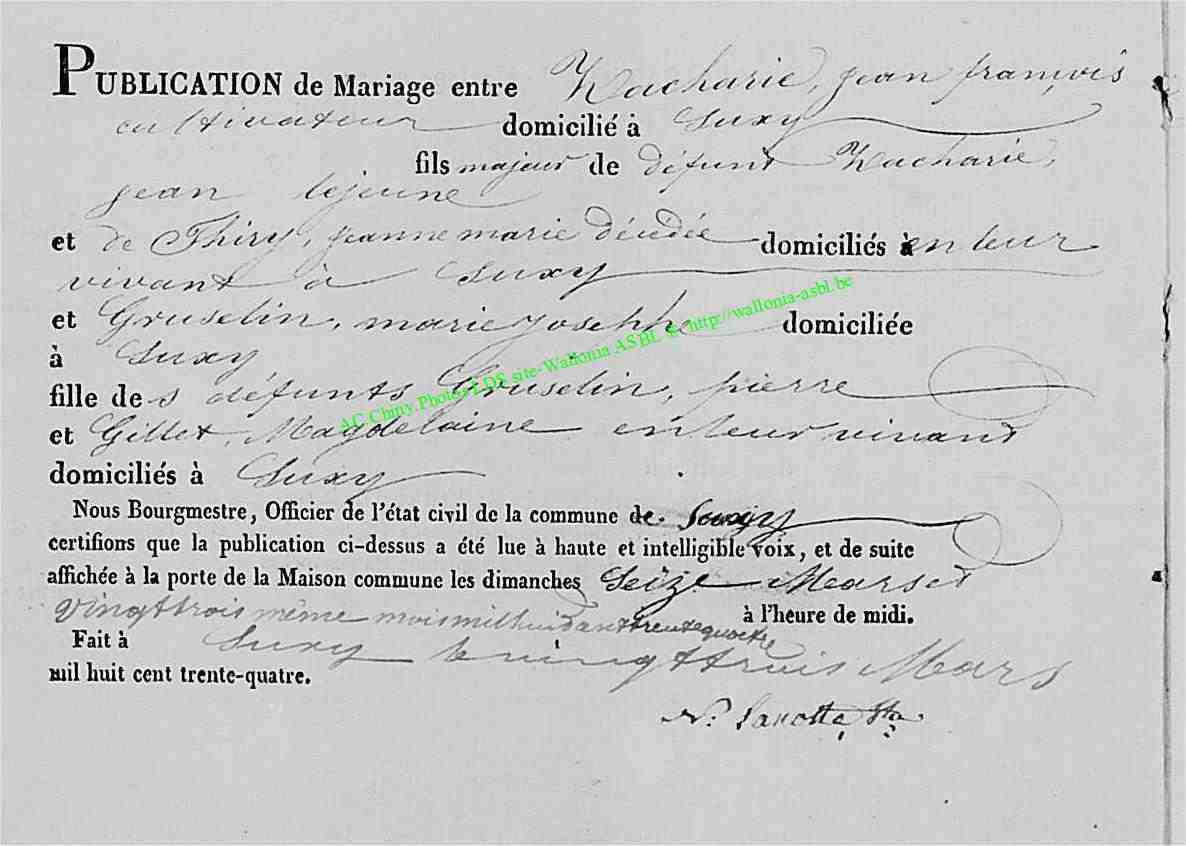 PUBLICATION de Mariage entre Zacharie, jean françois
cultivateur domicilié à Suxy
fils majeur de défunt Zacharie,
jean lejeune
et de Thiry, jeanne marie décédée domiciliés à en leur
vivant à Suxy
et Gruselin, marie josephe domiciliée
à Suxy
fille de s défunts Gruselin, pierre
et Gillet, Magdelaine en leur vivant
domiciliés à Suxy
Nous Bourgmestre, Officier de l'état civil de la commune de Suxy
certifions que la publication ci-dessus a été lue à haute et intelligible voix, et de suite
affichée à la porte de la Maison commune les dimanches Seize Mars et
vingt trois même mois mil huit cent trente quatre à l'heure de midi.
Fait à Suxy le vingt trois Mars
mil huit cent trente-quatre.
AC Chiny Photos LDS site-Wallonia ASBL © http://wallonia-asbl.be